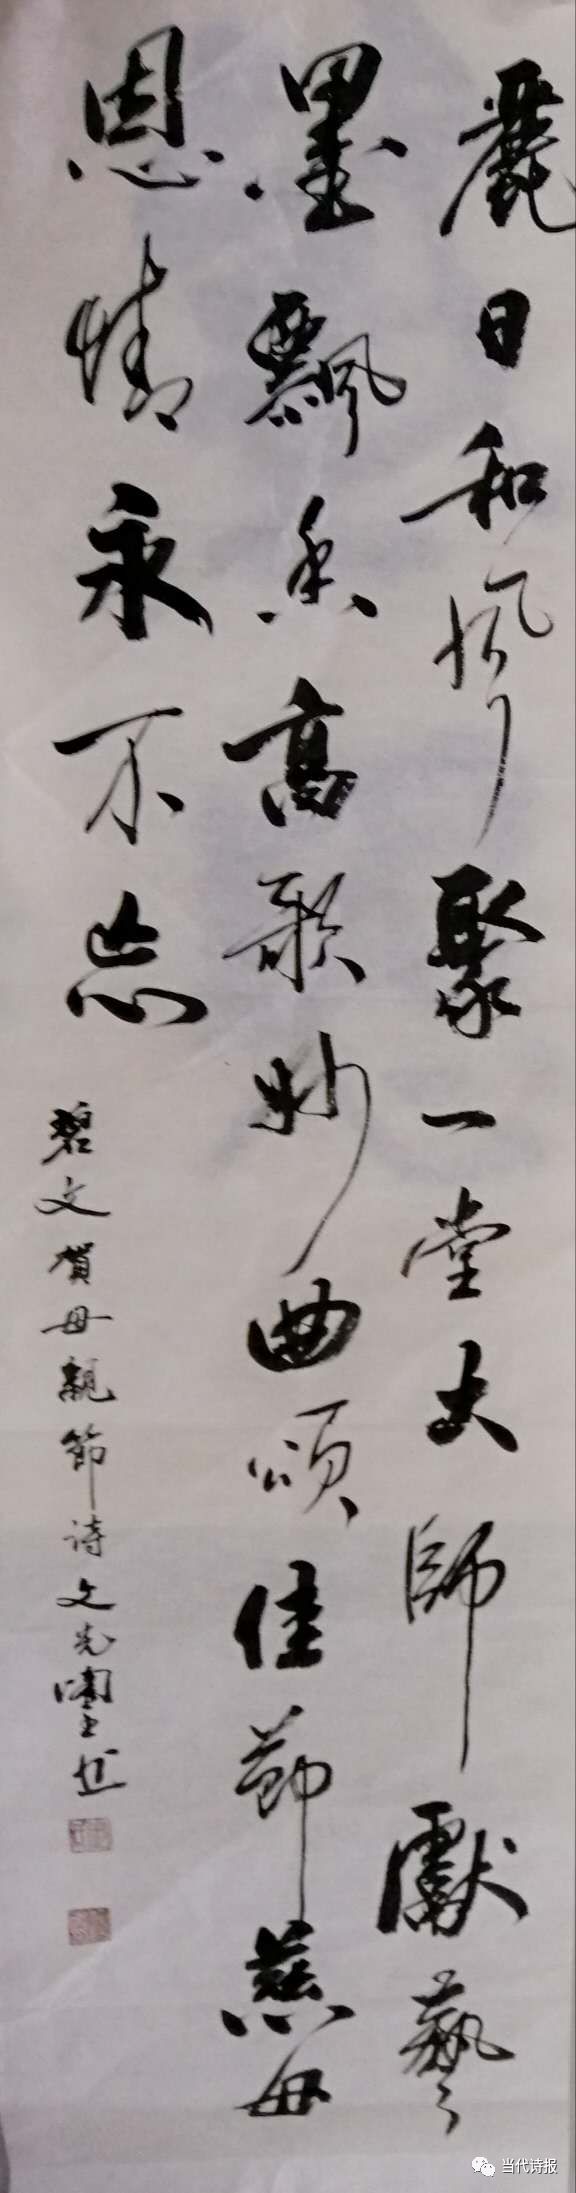 麗日和風聚一堂大師獻藝
墨飄香高歌妙曲頌佳節慈母
恩情永不忘
碧文賀母親節诗文先
当代诗报